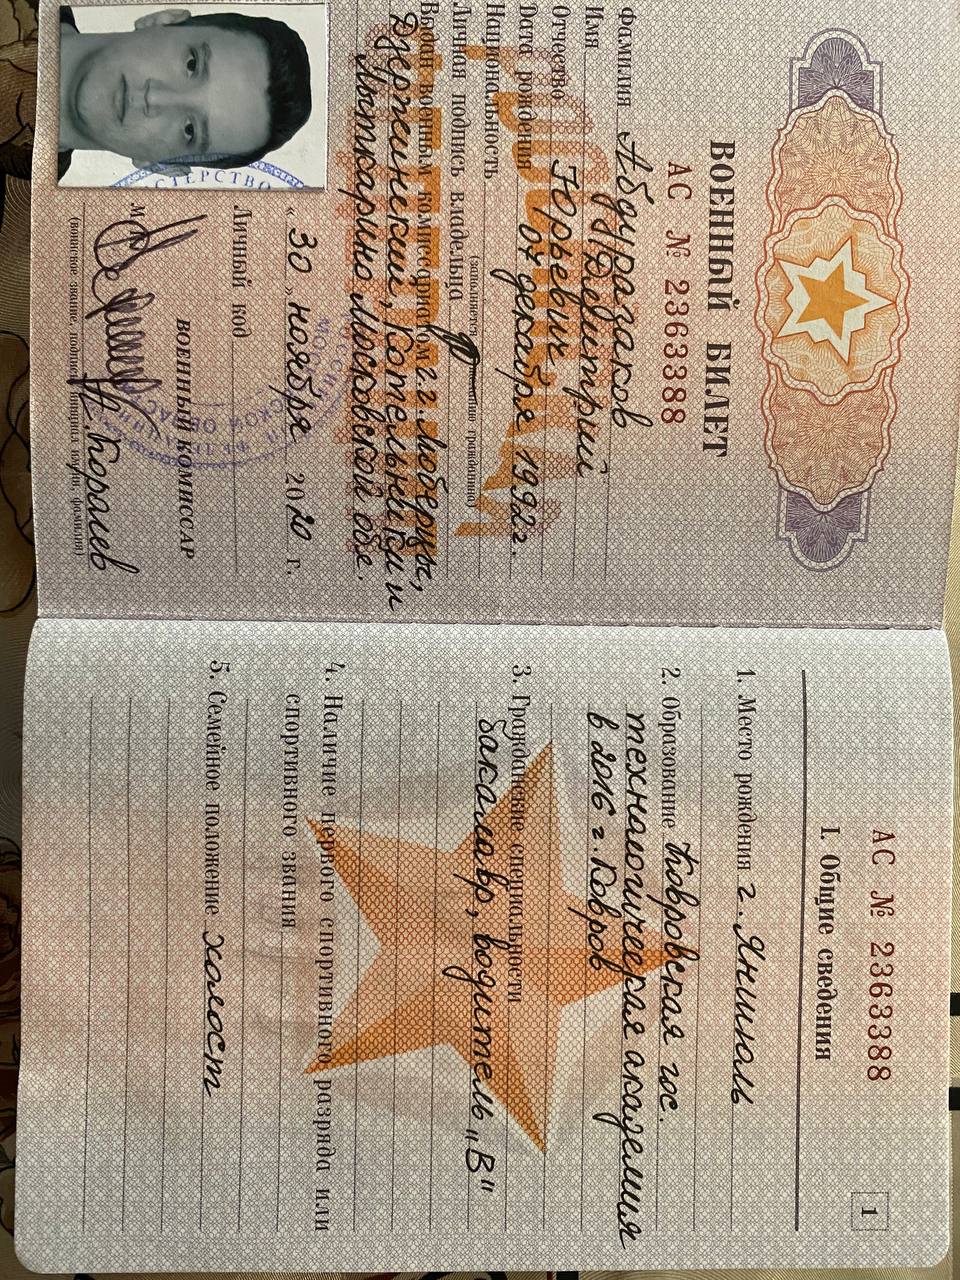 ВОЕННЫЙ БИЛЕТ
АС № 2363388
Фамилия Абдуразаков
Имя Дмитрий
Отчество Юрьевич
Дата рождения 07 декабря 1992 г.
Национальность
(заполняется по желанию гражданина)
Личная подпись владельца
Выдан военным комиссариатом г.г. Люберцы,
Дзержинский, Котельники и
Лыткарино Московской обл.
« 30 » ноября 2020 г.
Личный код
ВОЕННЫЙ КОМИССАР
М
Королев
(воинское звание, подпись, инициал имени, фамилия)
АС № 2363388
1
I. Общие сведения
1. Место рождения г. Янгиюль
2. Образование Ковровская гос.
технологическая академия
в 2016 г. Ковров
3. Гражданские специальности
бакалавр, водитель „В"
4. Наличие первого спортивного разряда или
спортивного звания
5. Семейное положение холост